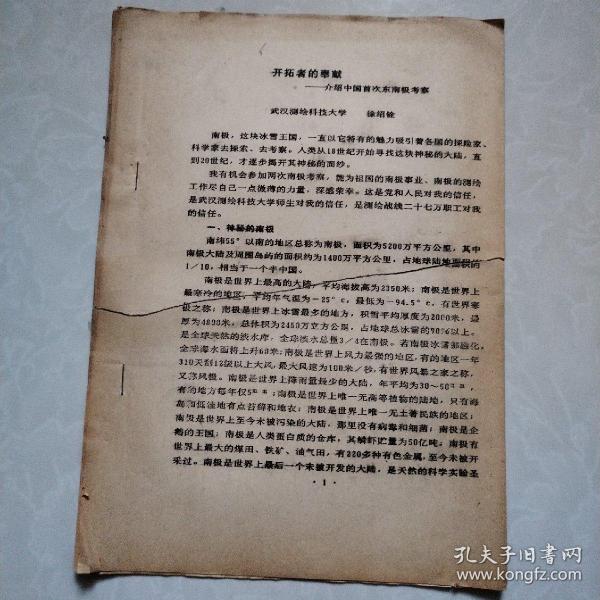 开拓者的奉献
——介绍中国首次东南极考察
武汉测绘科技大学 徐绍铨
南极，这块冰雪王国，一直以它特有的魅力吸引着各国的探险家、
科学家去探索、去考察。人类从18世纪开始寻找这块神秘的大陆，直
到20世纪，才逐步揭开其神秘的面纱。
我有机会参加两次南极考察，能为祖国的南极事业、南极的测绘
工作尽自己一点微薄的力量，深感荣幸。这是党和人民对我的信任，
是武汉测绘科技大学师生对我的信任，是测绘战线二十七万职工对我
的信任。
一、神秘的南极
南纬55°以南的地区总称为南极，面积为5200万平方公里，其中
南极大陆及周围岛屿的面积约为1400万平方公里，占地球陆地面积的
1/10，相当于一个半中国。
南极是世界上最高的大陆，平均海拔高为2350米；南极是世界上
最寒冷的地区，平均年气温为-25°c，最低为-94.5°c，有世界寒
极之称；南极是世界上冰雪最多的地方，积雪平均厚度为2000米，最
厚为4800米，总体积为2450万立方公里，占地球总冰雪的90%以上，
是全球天然的淡水库，全球淡水总量3/4在南极。若南极冰雪都融化，
全球海水面将上升60米；南极是世界上风力最强的地区，有的地区一年
310天刮12级以上大风，最大风速为100米/秒，有世界风暴之家之称，
又称风极。南极是世界上降雨量最少的大陆，年平均为30～50㎜，
者的地方每年仅5㎜；南极是世界上唯一无高等植物的陆地，只有海
岛和低洼地有点苔藓和地衣；南极是世界上唯一无土著民族的地区；
南极是世界上至今未被污染的大陆，那里没有病毒和细菌；南极是企
鹅的王国；南极是人类蛋白质的仓库，其鳞虾贮量为50亿吨；南极有
世界上最大的煤田、铁矿、油气田，有220多种有色金属，至今未被开
采过。南极是世界上最后一个未被开发的大陆，是天然的科学实验圣
·1·
孔夫子旧书网
www.kongfz.com